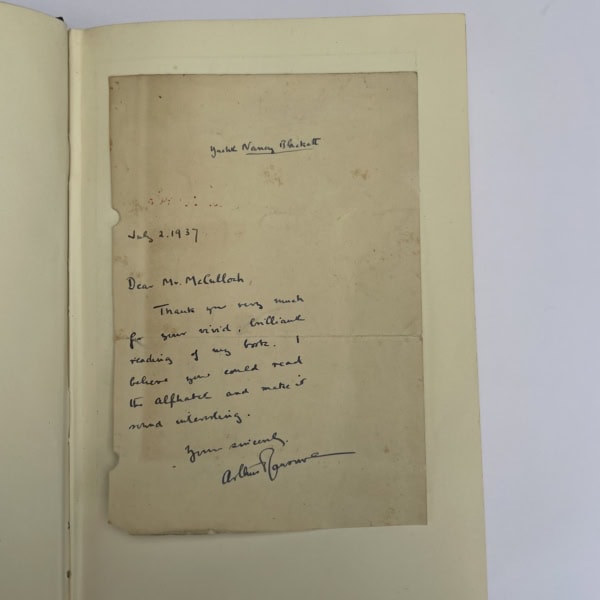 Yacht Nancy Blackett
July 2. 1937
Dear Mr. McCulloch,
Thank you very much
for your vivid, brilliant
reading of my book. I
believe you could read
the alphabet and make it
sound interesting.
Yours sincerely,
Arthur Ransome